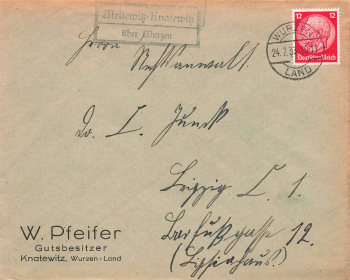 Meltewitz-Knatewitz
über Wurzen
12 12
Deutsches Reich
WURZEN
24.2.3
LAND
Herrn Rechtsanwalt.
Dr. C. Junck
Leipzig C. 1.
Barfußgasse 12.
(Lipsiahaus.)
W. Pfeifer
Gutsbesitzer
Knatewitz, Wurzen-Land